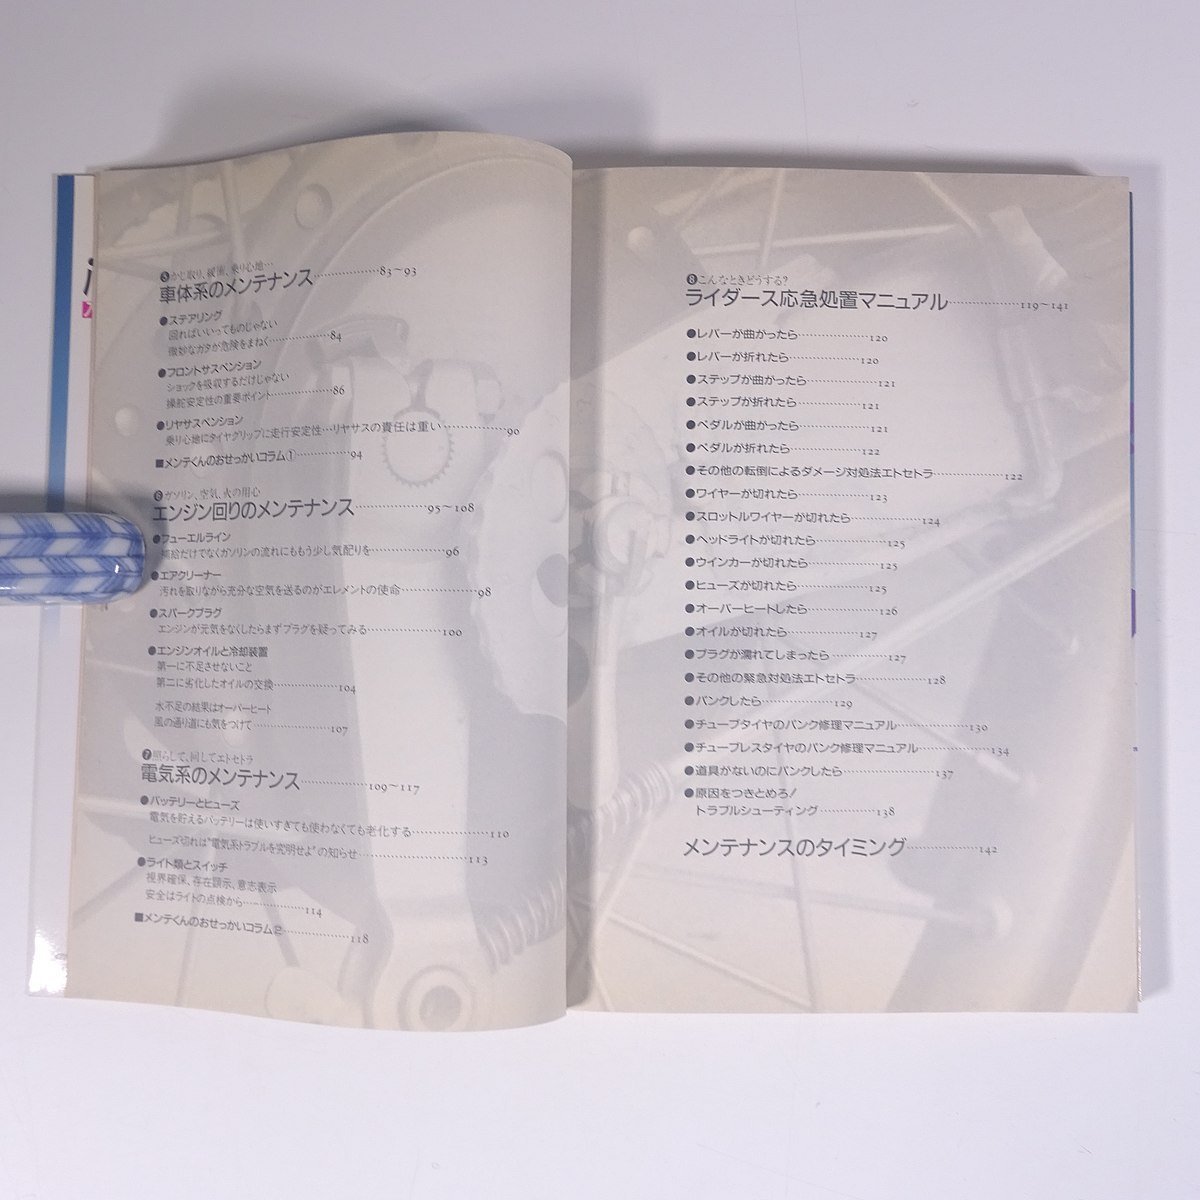 ❺かじ取り、緩衝、乗り心地…
車体系のメンテナンス……………83～93
●ステアリング
回ればいいってものじゃない
微妙なガタが危険をまねく……………84
●フロントサスペンション
ショックを吸収するだけじゃない
操舵安定性の重要ポイント……………86
●リヤサスペンション
乗り心地にタイヤグリップに走行安定性…リヤサスの責任は重い……………90
■メンテくんのおせっかいコラム①……………94
❻ガソリン、空気、火の用心
エンジン回りのメンテナンス……………95～108
●フューエルライン
補給だけでなくガソリンの流れにももう少し気配りを……………96
●エアクリーナー
汚れを取りながら充分な空気を送るのがエレメントの使命……………98
●スパークプラグ
エンジンが元気をなくしたらまずプラグを疑ってみる……………100
●エンジンオイルと冷却装置
第一に不足させないこと
第二に劣化したオイルの交換……………104
水不足の結果はオーバーヒート
風の通り道にも気をつけて……………107
❼照らして、回してエトセトラ
電気系のメンテナンス……………109～117
●バッテリーとヒューズ
電気を貯えるバッテリーは使いすぎても使わなくても老化する……………110
ヒューズ切れは“電気系トラブルを究明せよ”の知らせ……………113
●ライト類とスイッチ
視界確保、存在顕示、意志表示
安全はライトの点検から……………114
■メンテくんのおせっかいコラム②……………118
❽こんなときどうする?
ライダース応急処置マニュアル……………119～141
●レバーが曲がったら……………120
●レバーが折れたら……………120
●ステップが曲がったら……………121
●ステップが折れたら……………121
●ペダルが曲がったら……………121
●ペダルが折れたら……………122
●その他の転倒によるダメージ対処法エトセトラ……………122
●ワイヤーが切れたら……………123
●スロットルワイヤーが切れたら……………124
●ヘッドライトが切れたら……………125
●ウインカーが切れたら……………125
●ヒューズが切れたら……………125
●オーバーヒートしたら……………126
●オイルが切れたら……………127
●プラグが濡れてしまったら……………127
●その他の緊急対処法エトセトラ……………128
●パンクしたら……………129
●チューブタイヤのパンク修理マニュアル……………130
●チューブレスタイヤのパンク修理マニュアル……………134
●道具がないのにパンクしたら……………137
●原因をつきとめろ!
トラブルシューティング……………138
メンテナンスのタイミング……………142